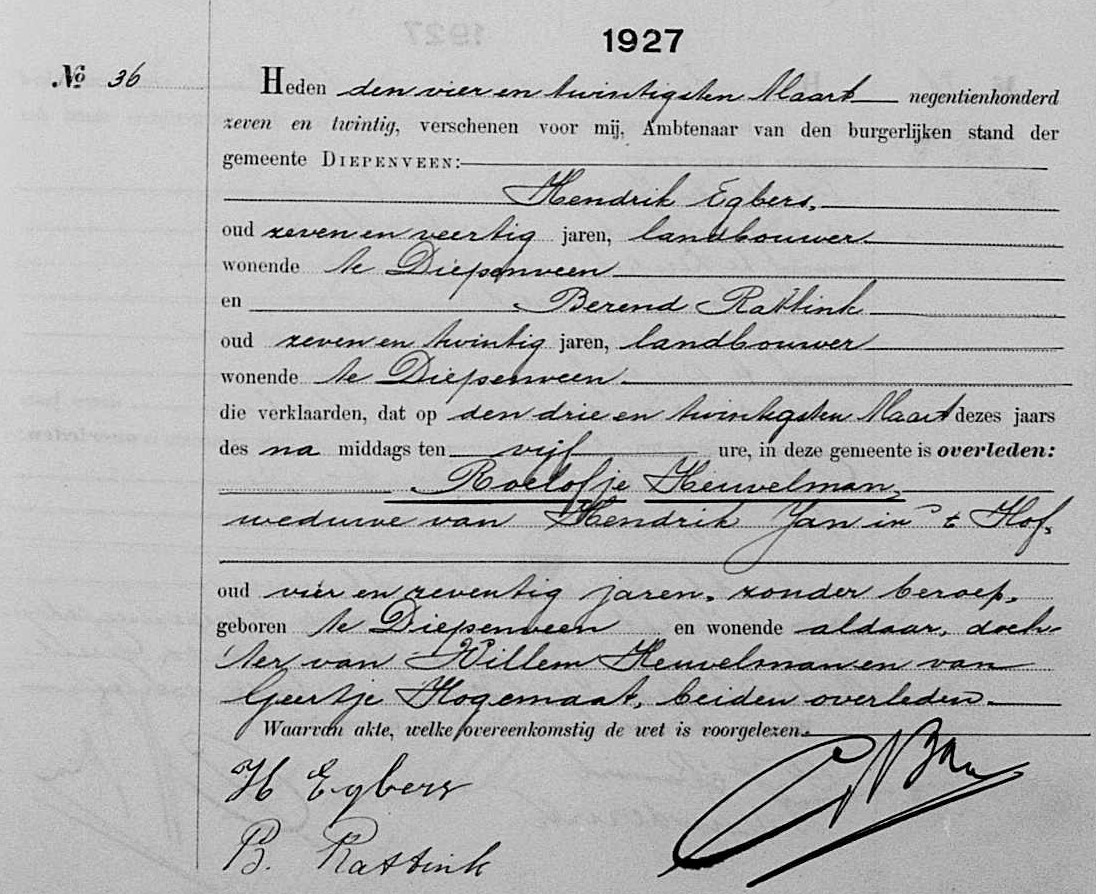 1927
No 36
Heden den vier en twintigsten Maart negentienhonderd
zeven en twintig, verschenen voor mij, Ambtenaar van den burgerlijken stand der
gemeente DIEPENVEEN:
Hendrik Egbers,
oud zeven en veertig jaren, landbouwer
wonende te Diepenveen
en Berend Rattink
oud zeven en twintig jaren, landbouwer
wonende te Diepenveen
die verklaarden, dat op den drie en twintigsten Maart dezes jaars
des na middags ten vijf ure, in deze gemeente is overleden:
Roelofje Heuvelman,
weduwe van Hendrik Jan in 't Hof,
oud vier en zeventig jaren, zonder beroep,
geboren te Diepenveen en wonende aldaar, doch-
ter van Willem Heuvelman en van
Geertje Hogemaat, beiden overleden.
Waarvan akte, welke overeenkomstig de wet is voorgelezen.
H Egbers
B. Rattink